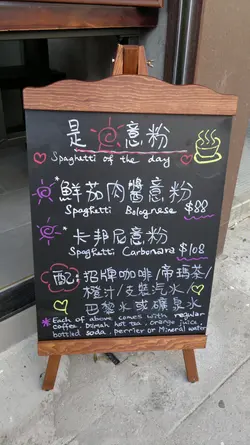 是日意粉
Spaghetti of the day
鮮茄肉醬意粉
Spaghetti Bolognese $88
卡邦尼意粉
Spaghetti Carbonara $108
配：招牌咖啡/帝瑪茶/
橙汁/支裝汽水/
巴黎水或礦泉水
*Each of above comes with regular
coffee, Dilmah hot tea, orange juice,
bottled soda, perrier or Mineral water